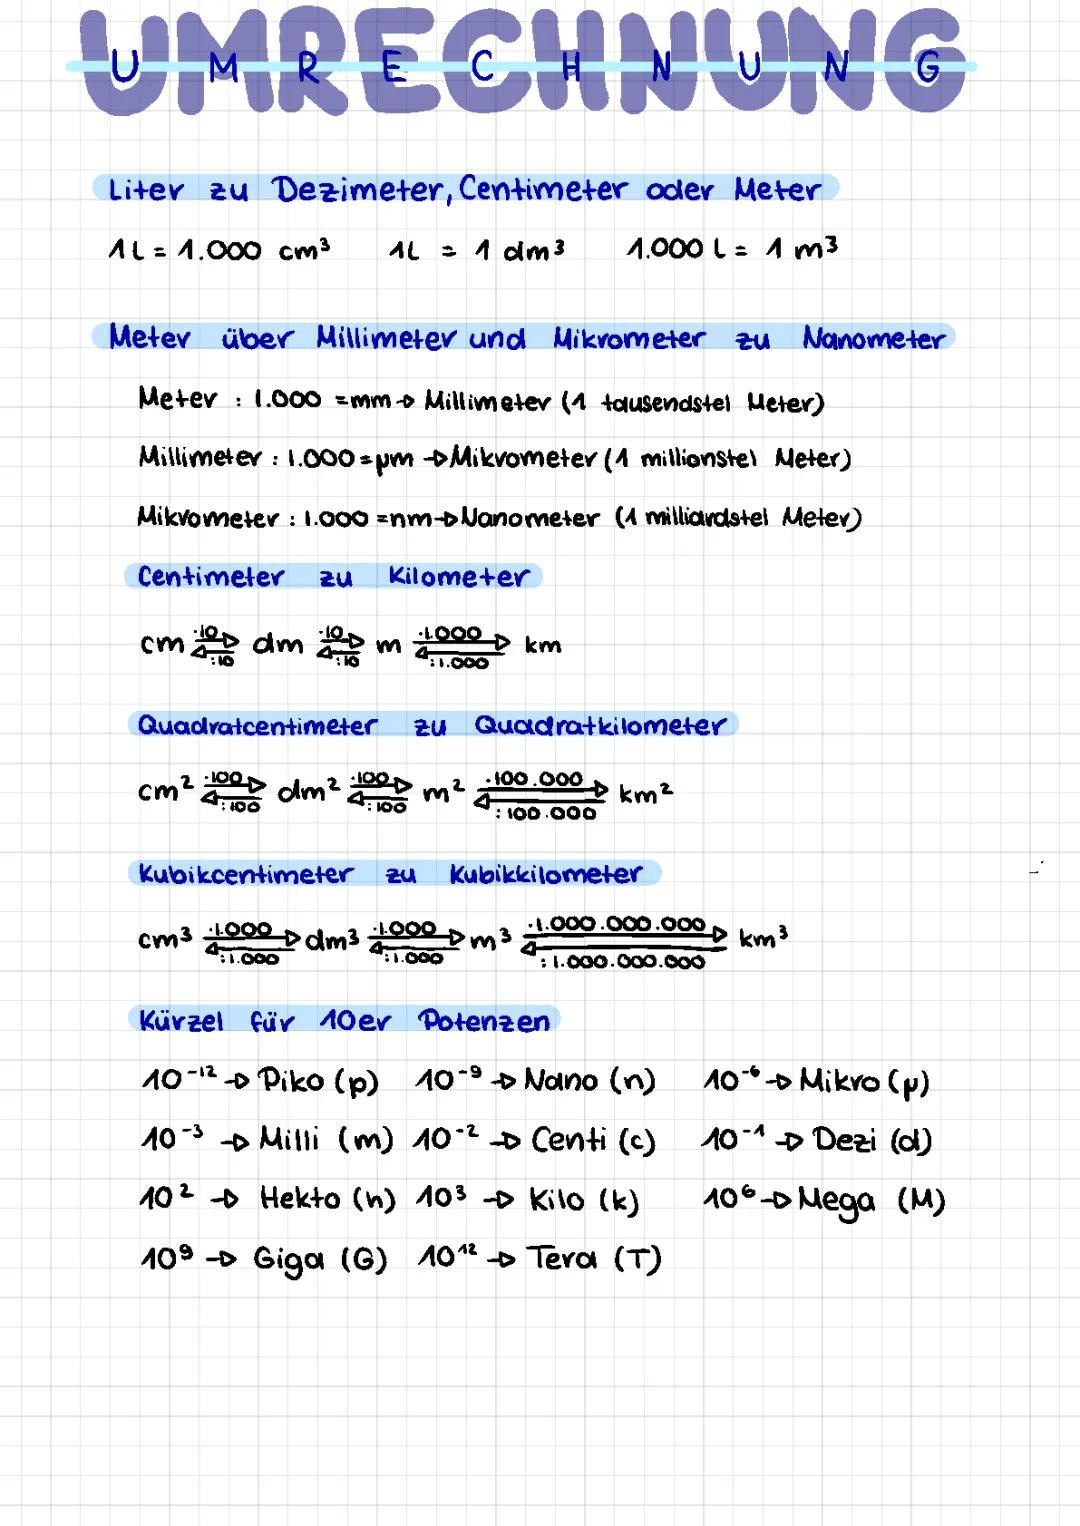 UMRECHNUNG
U M R E C H N U N G
Liter zu Dezimeter, Centimeter oder Meter
1L = 1.000 cm³ 1L = 1 dm³ 1.000 l = 1 m³
Meter über Millimeter und Mikrometer zu Nanometer
Meter : 1.000 = mm → Millimeter (1 tausendstel Meter)
Millimeter : 1.000 = µm → Mikrometer (1 millionstel Meter)
Mikrometer : 1.000 = nm → Nanometer (1 milliardstel Meter)
Centimeter zu Kilometer
·10 ·10 ·1.000
cm dm m km
:10 :10 :1.000
Quadratcentimeter zu Quadratkilometer
·100 ·100 ·100.000
cm² dm² m² km²
:100 :100 :100.000
Kubikcentimeter zu Kubikkilometer
·1.000 ·1.000 ·1.000.000.000
cm³ dm³ m³ km³
:1.000 :1.000 :1.000.000.000
Kürzel für 10er Potenzen
10⁻¹² → Piko (p) 10⁻⁹ → Nano (n) 10⁻⁶ → Mikro (µ)
10⁻³ → Milli (m) 10⁻² → Centi (c) 10⁻¹ → Dezi (d)
10² → Hekto (h) 10³ → Kilo (k) 10⁶ → Mega (M)
10⁹ → Giga (G) 10¹² → Tera (T)